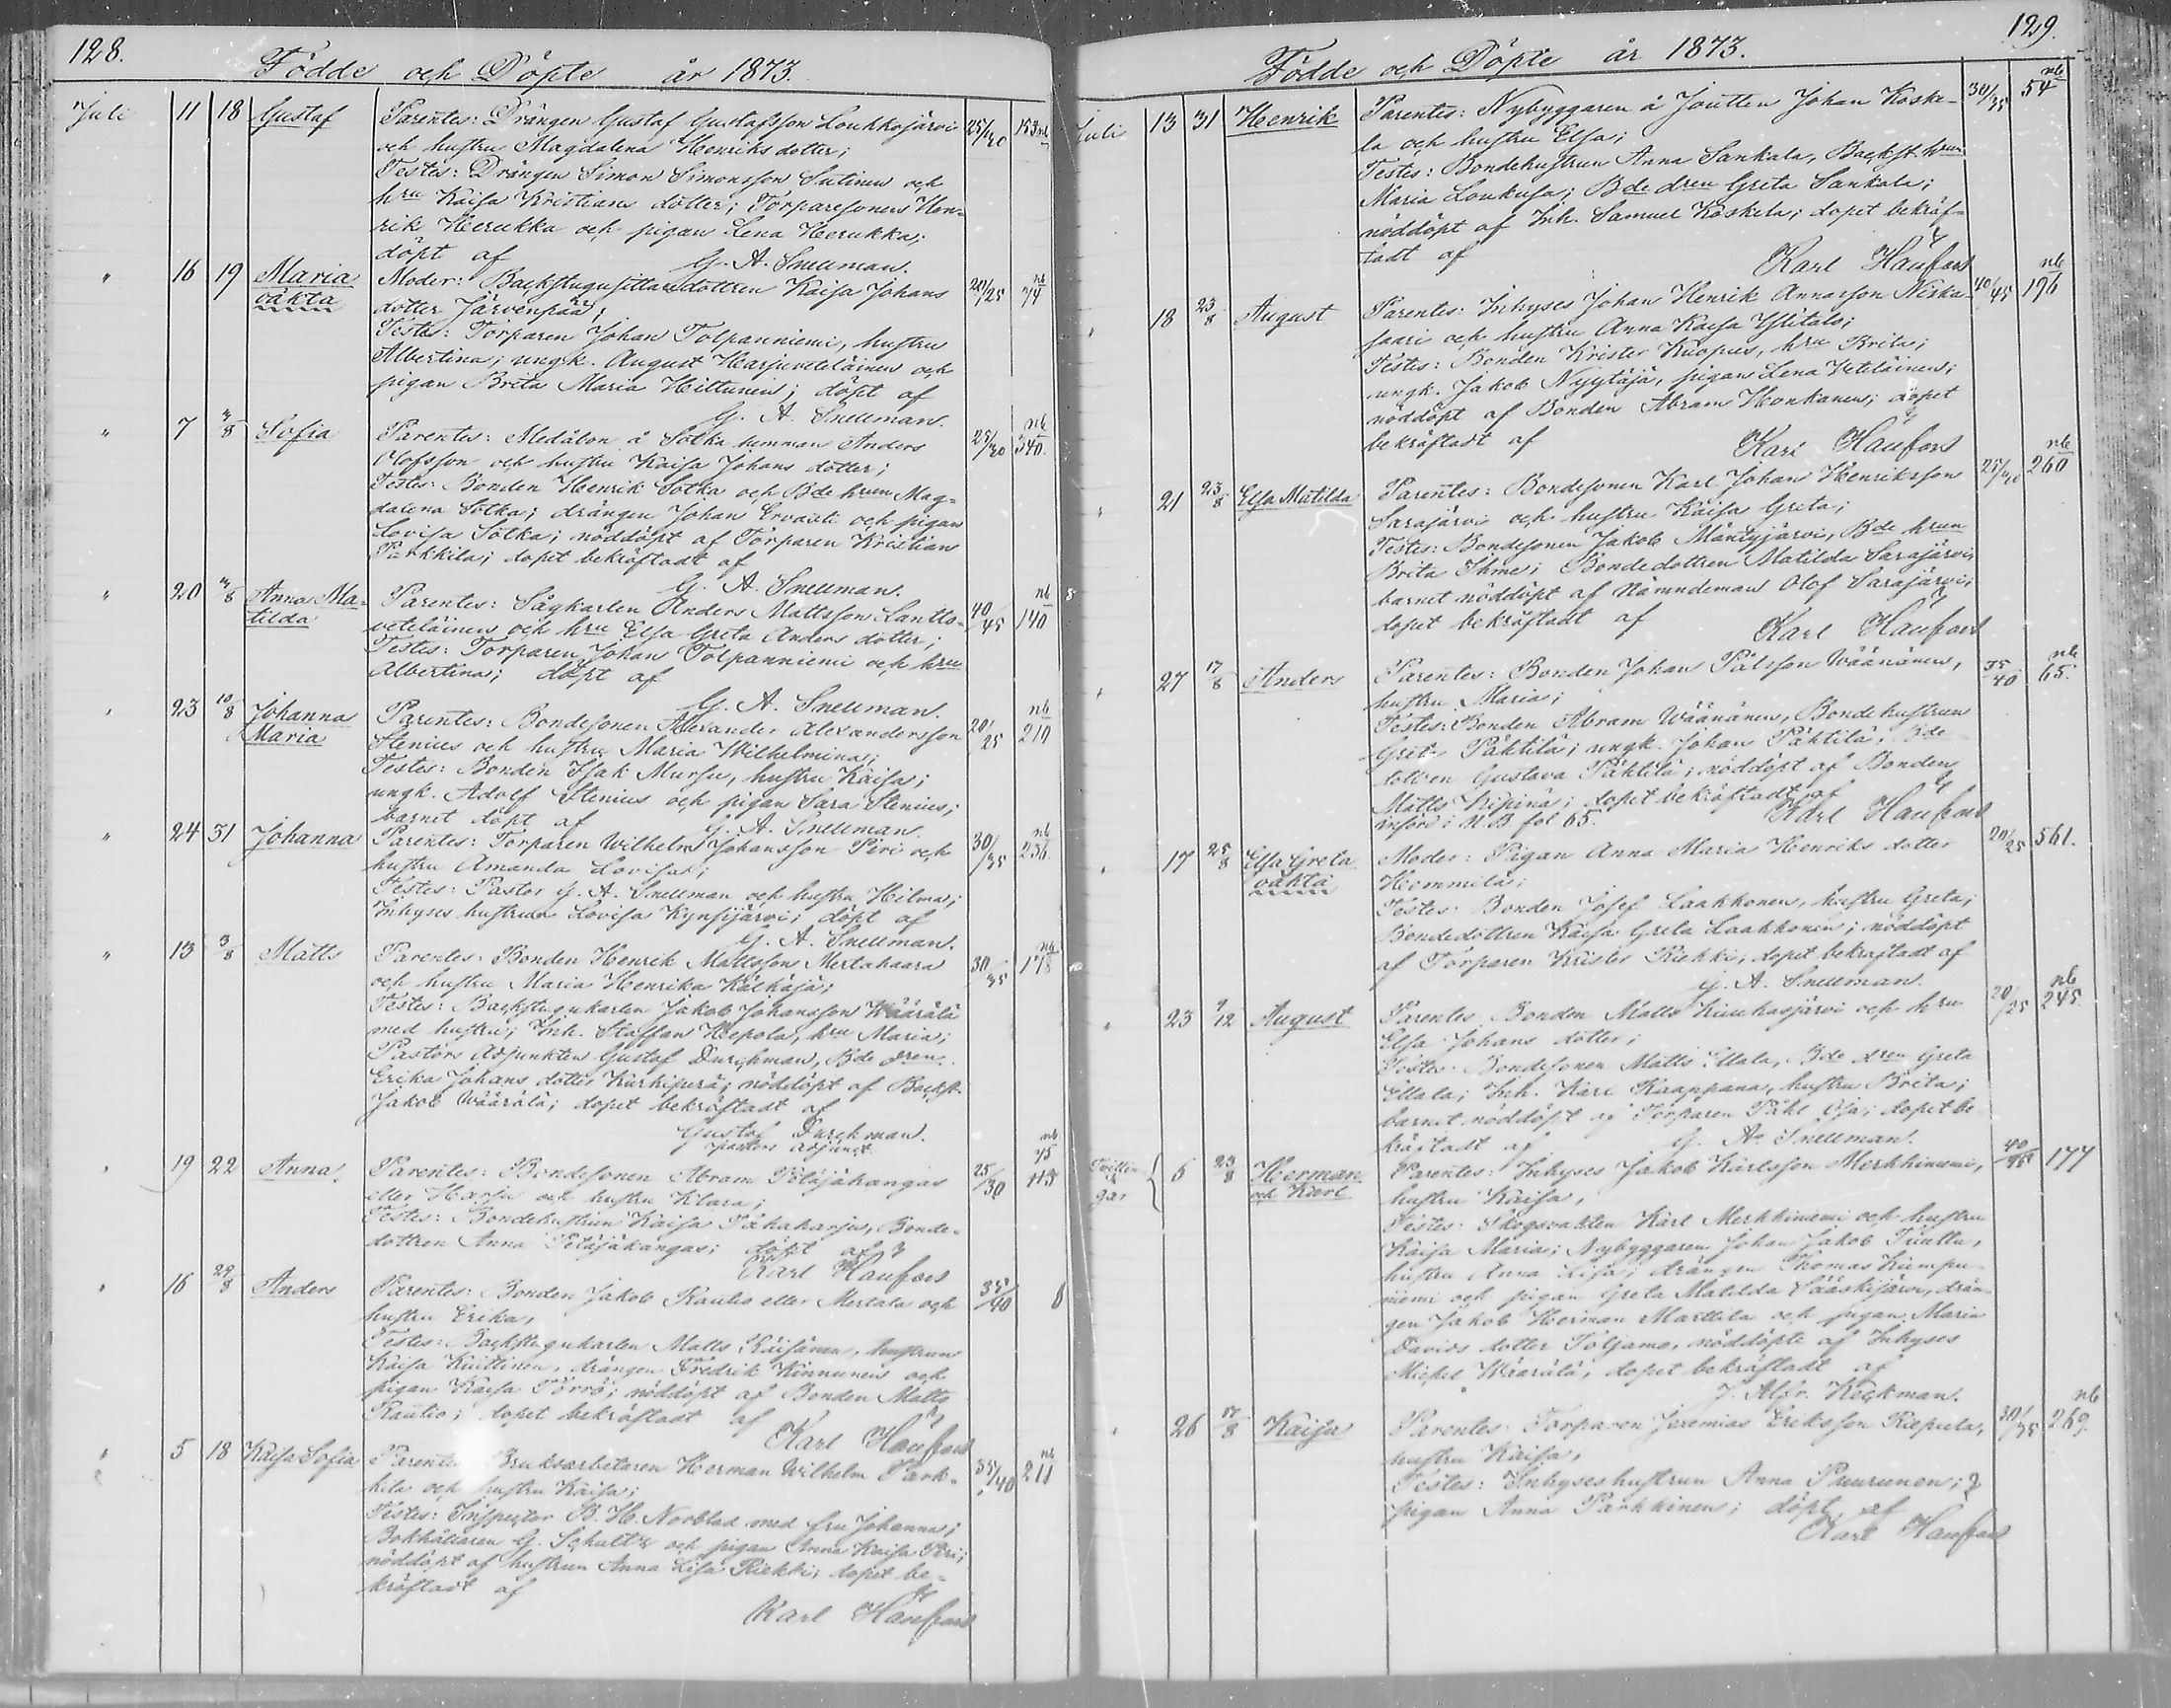 128.
Födde och Döpte år 1873.
Juli 11 18 Gustaf Parentes: Drängen Gustaf Gustafsson Loukkojärvi 25/30 153 nb
och hustru Magdalena Henriks dotter;
Testes: Drängen Simon Simonsson Sutinen och
hru Kaisa Kristians dotter; Torparesonen Hen-
rik Heerukka och pigan Lena Heerukka;
döpt af G. A. Snellman.
" 16 19 Maria Moder: Backstugusittaredottren Kaisa Johans 20/25 nb
oäkta dotter Järvenpää;
Testes: Torparen Johan Tolpanniemi, hustru
Albertina; ungk. August Harjuveteläinen och
pigan Brita Maria Hiltunen; döpt af
G. A. Snellman.
" 7 3/8 Sofia Parentes: Medålon å Sotka hemman Anders 25/30 nb 340.
Olofsson och hustru Kaisa Johans dotter;
Testes: Bonden Henrik Sotka och Bde hrun Mag-
dalena Sotka; drängen Johan Ervasti och pigan
Lovisa Sotka; nöddöpt af Torparen Kristian
Parkkila; dopet bekräftadt af
G. A. Snellman.
" 20 3/8 Anna Ma- Parentes: Sågkarlen Anders Mattsson Lantto- 40/45 nb 140
tilda veteläinen och hru Elsa Greta Anders dotter;
Testes: Torparen Johan Tolpanniemi och hru
Albertina; döpt af
G. A. Snellman.
" 23 10/8 Johanna Parentes: Bondesonen Alexander Alexandersson 20/25 nb 210
Maria Stenius och hustru Maria Wilhelmina;
Testes: Bonden Isak Mursu, hustru Kaisa;
ungk. Adolf Stenius och pigan Sara Stenius;
barnet döpt af G. A. Snellman.
" 24 31 Johanna Parentes: Torparen Wilhelm Johansson Piri och 30/35 nb 236.
hustru Amanda Lovisa;
Testes: Pastor G. A. Snellman och hustru Hilma;
Inhyses hustrun Lovisa Kynsijärvi; döpt af
G. A. Snellman.
" 13 3/8 Matts Parentes: Bonden Henrik Mattsson Mertahaara 30/35 nb 178
och hustru Maria Henrika Kälkäjä;
Testes: Backstugukarlen Jakob Johansson Wäärälä
med hustru; Inh. Staffan Hepola, hru Maria;
Pastors Adjunkten Gustaf Durchman, Bde dren
Erika Johans dotter Kurkiperä; nöddöpt af Backst.
Jakob Wäärälä; dopet bekräftadt af
Gustaf Durchman.
pastors adjunct
" 19 22 Anna Parentes: Bondesonen Abram Petäjäkangas 25/30 nb 75
eller Harju och hustru Klara;
Testes: Bondehustrun Kaisa Pahaharju, Bonde-
dottren Anna Petäjäkangas; döpt af
Karl Haufors
" 16 29/8 Anders Parentes: Bonden Jakob Rautio eller Mertala och 35/40 8
hustru Erika,
Testes: Backstugukarlen Matts Räisänen, hustrun
Kaisa Kuittinen, drängen Fredrik Kinnunen och
pigan Kaisa Törrö; nöddöpt af Bonden Matts
Rautio; dopet bekräftadt af
Karl Haufors
" 5 18 Kaisa Sofia Parentes Bruksarbetaren Herman Wilhelm Park- 35/40 nb 211
kila och hustru Kaisa;
Testes: Inspector B. H. Norblad med fru Johanna;
Bokhållaren G. Schultz och pigan Anna Kaisa Piri;
nöddöpt af hustrun Anna Lisa Riekki; dopet be-
kräftadt af
Karl Haufors
129.
Födde och Döpte år 1873.
Juli 13 31 Henrik Parentes: Nybyggaren å Joutten Johan Koske- 30/35 nb 54
la och hustru Elsa;
Testes: Bondehustrun Anna Sankala, Backst. hrun
Maria Loukusa; Bde dren Greta Sankala;
nöddöpt af Inh. Samuel Koskela; dopet bekräf-
tadt af
Karl Haufors
" 18 23/8 August Parentes: Inhyses Johan Henrik Annasson Niska- 40/45 nb 196
saari och hustru Anna Kaisa Ylitalo;
Testes: Bonden Krister Kuopus, hru Brita;
ungk. Jakob Nyytäjä, pigan Lena Veteläinen;
nöddöpt af Bonden Abram Honkanen; dopet
bekräftadt af
Karl Haufors
" 21 23/8 Elsa Matilda Parentes: Bondesonen Karl Johan Henriksson nb 260
Sarajärvi och hustru Kaisa Greta;
Testes: Bondesonen Jakob Mäntyjärvi, Bde hrun
Brita Ihme; Bondedottren Matilda Sarajärvi,
barnet nöddöpt af Nämndeman Olof Sarajärvi;
dopet bekräftadt af
Karl Haufors
" 27 17/8 Anders Parentes: Bonden Johan Pålsson Wäänänen, 35/40 nb 65.
hustru Maria;
Testes: Bonden Abram Wäänänen, Bonde hustrun
Greta Päktilä; ungk. Johan Päktilä, Bde
dottren Gustava Päktilä; nöddöpt af Bonden
Matts Kipinä; dopet bekräftadt af
införd i N.B fol 65. Karl Haufors
" 17 25/8 Elsa Greta Moder: Pigan Anna Maria Henriks dotter 20/25 561.
oäkta Hemmilä;
Testes: Bonden Josef Laakkonen, hustru Greta;
Bondedottren Kaisa Greta Laakkonen; nöddöpt
af Torparen Krister Riekki, dopet bekräftadt af
G. A. Snellman.
" 23 9/12 August Parentes Bonden Matts Kuukasjärvi och hru 20/25 nb 245.
Elsa Johans dotter;
Testes: Bondesonen Matts Ellala, Bde dren Greta
Ellala; Inh. Karl Kaappana, hustru Brita;
barnet nöddöpt af Torparen Påhl Oja; dopet be-
kräftadt af G. A. Snellman.
Tvillin- 5 23/8 Herman Parentes: Inhyses Jakob Karlsson Merkkiniemi, 40/45 177
gar och Karl hustru Kaisa,
Testes: Skogsvakten Karl Merkkiniemi och hustru
Kaisa Maria; Nybyggaren Johan Jakob Tuuttu,
hustru Anna Lisa; drängen Thomas Kumpu-
niemi och pigan Greta Matilda Sääskijärvi, drän-
gen Jakob Herman Marttila och pigan Maria
Davids dotter Poljamo, nöddöpte af Inhyses
Michel Wäärälä, dopet bekräftadt af
J. Alfr. Heckman.
" 26 17/8 Kaisa Parentes: Torparen Jeremias Eriksson Riepula, 30/35 nb 269.
hustru Kaisa,
Testes: Inhyseshustrun Anna Puurunen;
pigan Anna Parkkinen; döpt af
Karl Haufors